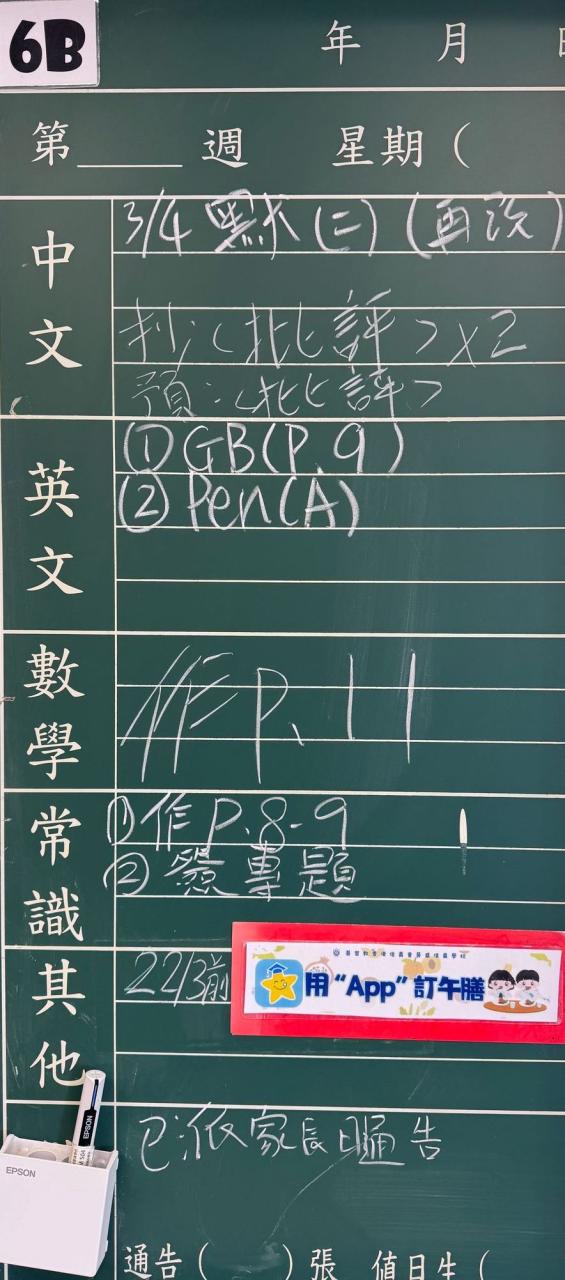 6B
年 月
第 週 星期(
中文
3/4 默(二)(再說)
抄:<批評>x2
預:<批評>
英文
①GB(P.9)
② Pen(A)
數學
作P.11
常識
①作P.8-9
②簽專題
其他
22/3前
用“App”訂午膳
EPSON
EPSON
已派家長日通告
通告( )張 值日生(